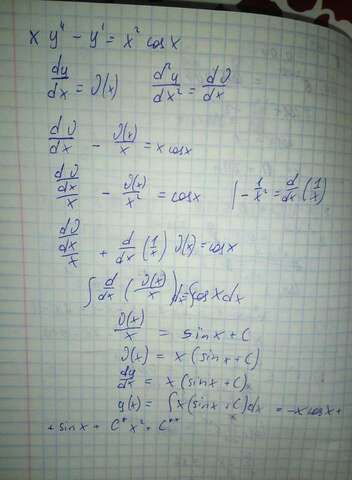 x y'' - y' = x² cos x
dy/dx = υ(x)   d²y/dx² = dυ/dx
dυ/dx - υ(x)/x = x cos x
(dυ/dx)/x - υ(x)/x² = cos x   | -1/x² = d/dx (1/x)
(dυ/dx)/x + d/dx (1/x) υ(x) = cos x
∫ d/dx (υ(x)/x) dx = ∫ cos x dx
υ(x)/x = sin x + C
υ(x) = x (sin x + C)
dy/dx = x (sin x + C)
y(x) = ∫ x (sin x + C) dx = -x cos x +
+ sin x + C* x² + C**